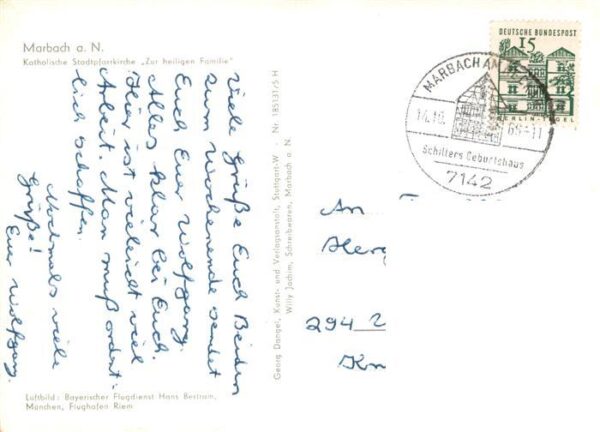 Marbach a. N.
Katholische Stadtpfarrkirche „Zur heiligen Familie"
Viele Grüße Euch Beiden
zum Wochenende sendet
Euch Euer Wolfgang.
Alles klar bei Euch.
Hier ist vieleicht viel
Arbeit. Man muß ordent-
lich schaffen.
Nochmals viele
Grüße!
Euer Wolfgang.
Luftbild: Bayerischer Flugdienst Hans Bertram,
München, Flughafen Riem
Georg Dangel, Kunst- und Verlagsanstalt, Stuttgart-W · Nr. 185131/5 H
Willy Jachim, Schreibwaren, Marbach a. N.
DEUTSCHE BUNDESPOST
15
BERLIN-TEGEL
MARBACH AM
14.10. 65-11
Schillers Geburtshaus
7142
An
294 2